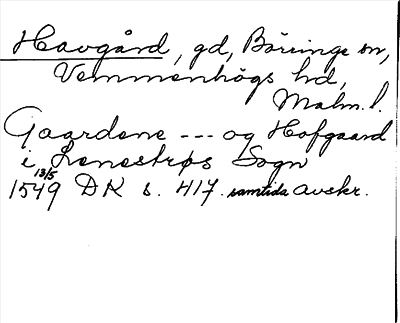 Havgård, gd, Börringe sn,
Vemmenhögs hd,
Malm. l.
Gaardene --- og Hofgaard
i Lenestrøs Sogn
13/5
1549 DK s. 417. samtida avskr.